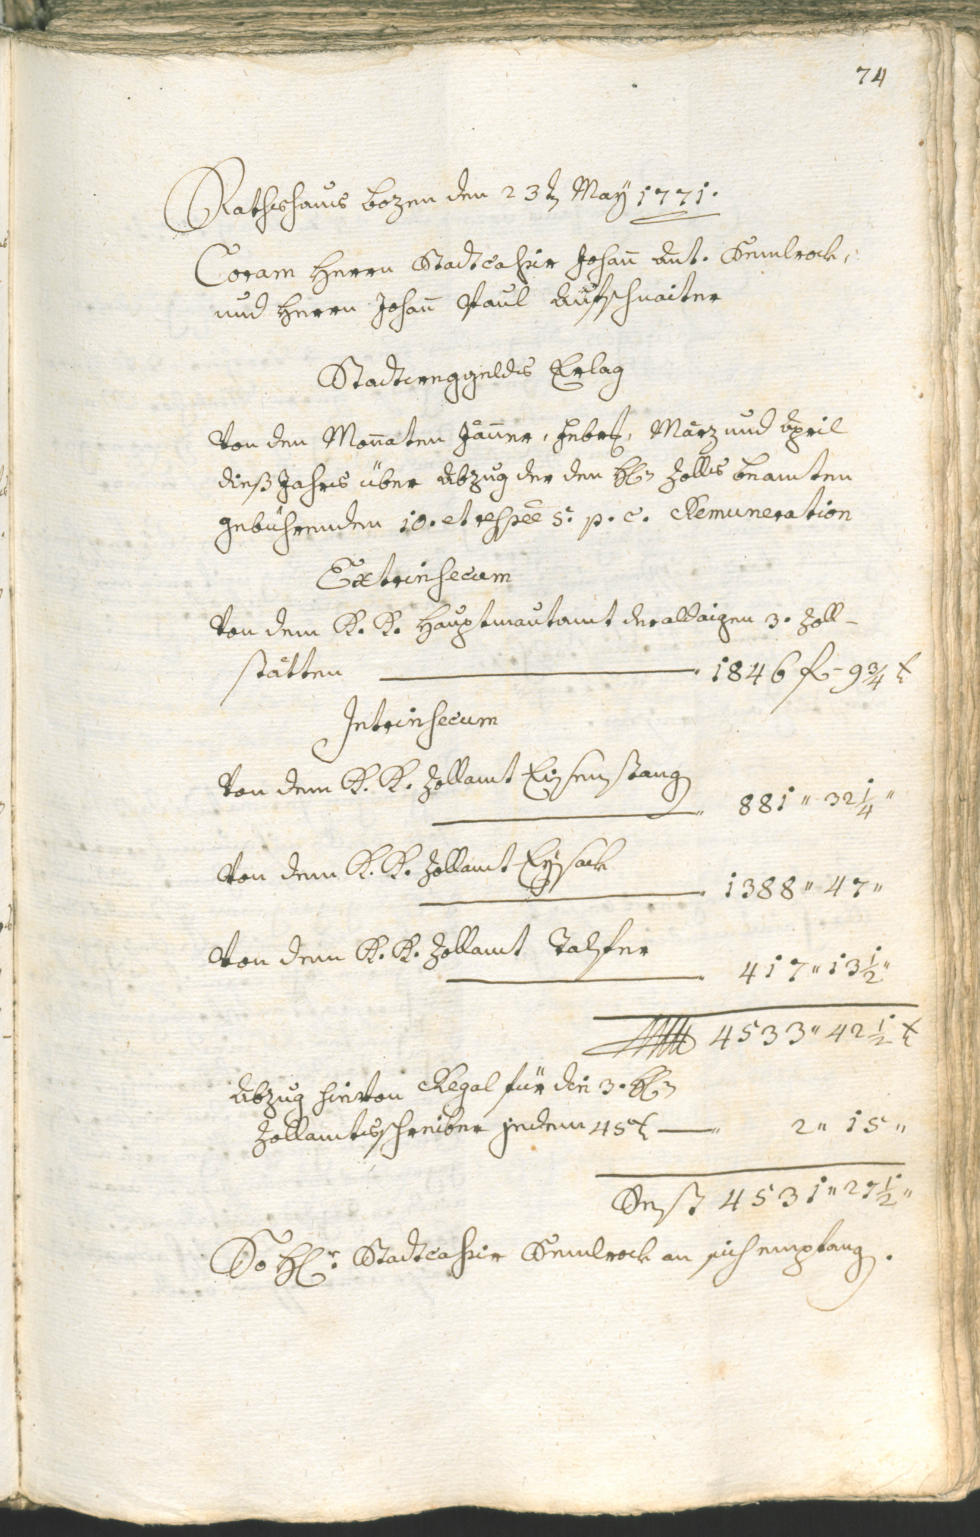 74
Rathshaus Bozen den 23t May 1771.
Coram Herrn Stadtcassier Johañ Ant. Semlrock,
und Herrn Johañ Paul Aufschnaiter
Stadtweggelds Erlag
Von den Moñaten Jäñer, Febr, März und April
dieß Jahrs über Abzug der den HH Zolls beamten
gebührenden 10. et respee 5. p. c. Remuneration
Extrinsecum
Von dem K. K. Hauptmautamt der allhiesigen 3. Zoll-
stätten 1846 f - 9 3/4 x
Intrinsecum
Von dem K. K. Zollamt Eisenstang
881 " 32 1/4 "
Von dem K. K. Zollamt Eysack
1388 " 47 "
Von dem K. K. Zollamt Talfer
417 " 13 1/2 "
4533 " 42 1/2 x
Abzug hievon Regal für die 3. HH
Zollamtsschreiber jedem 45 x 2 " 15 "
Rest 4531 " 27 1/2 "
So Hr Stadtcassier Semlrock an sich empfang.